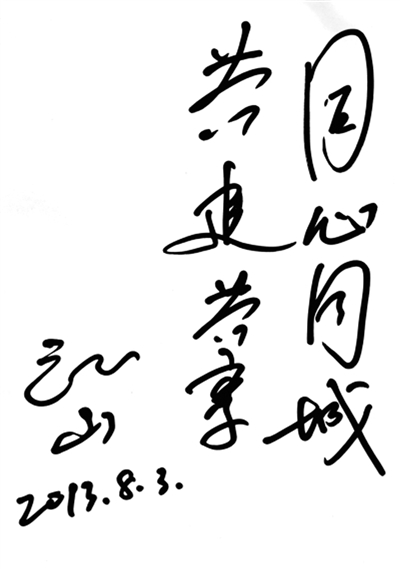 同心同城
共建共享
山
2013.8.3.